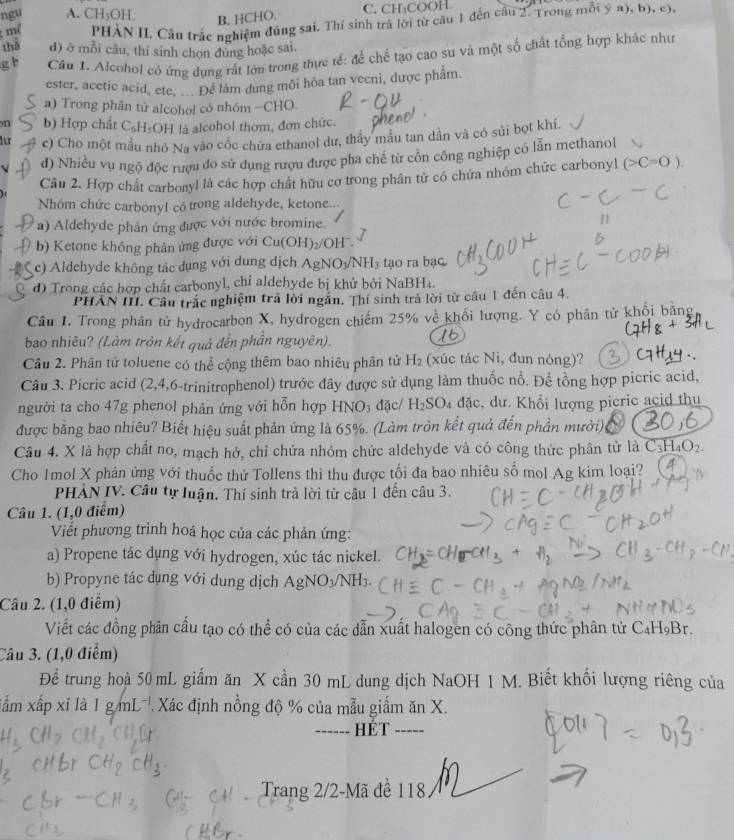 A. CH₃OH.
B. HCHO.
C. CH₃COOH.
ngu
PHẦN II. Câu trắc nghiệm đúng sai. Thí sinh trả lời từ câu 1 đến câu 2. Trong mỗi ý a), b), c),
thẳ
d) ở mỗi câu, thí sinh chọn đúng hoặc sai.
g b
Câu 1. Alcohol có ứng dụng rất lớn trong thực tế: để chế tạo cao su và một số chất tổng hợp khác như
ester, acetic acid, ete, ... Để làm dung môi hòa tan vecni, dược phẩm.
S a) Trong phân tử alcohol có nhóm –CHO. R - OH
S b) Hợp chất C₆H₅OH là alcohol thơm, đơn chức. phenol
Đ c) Cho một mẩu nhỏ Na vào cốc chứa ethanol dư, thấy mẩu tan dần và có sủi bọt khí.
d) Nhiều vụ ngộ độc rượu do sử dụng rượu được pha chế từ cồn công nghiệp có lẫn methanol
Câu 2. Hợp chất carbonyl là các hợp chất hữu cơ trong phân tử có chứa nhóm chức carbonyl (>C=O ).
Nhóm chức carbonyl có trong aldehyde, ketone...
C - C - C
Đ a) Aldehyde phản ứng được với nước bromine.
Đ b) Ketone không phản ứng được với Cu(OH)₂/OH⁻.
S c) Aldehyde không tác dụng với dung dịch AgNO₃/NH₃ tạo ra bạc. CH₃COOH
CH≡C - COOH
d) Trong các hợp chất carbonyl, chỉ aldehyde bị khử bởi NaBH₄.
PHẦN III. Câu trắc nghiệm trả lời ngắn. Thí sinh trả lời từ câu 1 đến câu 4.
Câu 1. Trong phân tử hydrocarbon X, hydrogen chiếm 25% về khối lượng. Y có phân tử khối bằng
bao nhiêu? (Làm tròn kết quả đến phần nguyên). 16 C7H8 + 3H2
Câu 2. Phân tử toluene có thể cộng thêm bao nhiêu phân tử H₂ (xúc tác Ni, đun nóng)? 3 C7H14..
Câu 3. Picric acid (2,4,6-trinitrophenol) trước đây được sử dụng làm thuốc nổ. Để tổng hợp picric acid,
người ta cho 47g phenol phản ứng với hỗn hợp HNO₃ đặc/ H₂SO₄ đặc, dư. Khối lượng picric acid thu
được bằng bao nhiêu? Biết hiệu suất phản ứng là 65%. (Làm tròn kết quả đến phần mười) 30,6
Câu 4. X là hợp chất no, mạch hở, chỉ chứa nhóm chức aldehyde và có công thức phân tử là C₃H₄O₂.
Cho 1mol X phản ứng với thuốc thử Tollens thì thu được tối đa bao nhiêu số mol Ag kim loại? 4
PHẦN IV. Câu tự luận. Thí sinh trả lời từ câu 1 đến câu 3.
CH≡C - CH2OH
Câu 1. (1,0 điểm)
-> CAg≡C - CH2OH
Viết phương trình hoá học của các phản ứng:
a) Propene tác dụng với hydrogen, xúc tác nickel. CH2=CH-CH3 + H2 Ni-> CH3-CH2-CH
b) Propyne tác dụng với dung dịch AgNO₃/NH₃. CH≡C - CH3 + AgNO3/NH3
-> CAg≡C - CH3 + NH4NO3
Câu 2. (1,0 điểm)
Viết các đồng phân cấu tạo có thể có của các dẫn xuất halogen có công thức phân tử C₄H₉Br.
Câu 3. (1,0 điểm)
Để trung hoà 50 mL giấm ăn X cần 30 mL dung dịch NaOH 1 M. Biết khối lượng riêng của
iấm xấp xỉ là 1 g/mL⁻¹. Xác định nồng độ % của mẫu giấm ăn X.
------ HẾT -----
H3 CH2 CH2 CH2Br
= 0,3
CHBr CH2 CH3
Trang 2/2-Mã đề 118
CBr - CH3
CH3
CH2Br